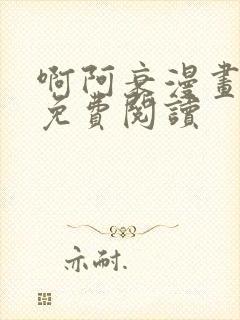 啊阿衰漫畫
免費閱讀
亦耐.